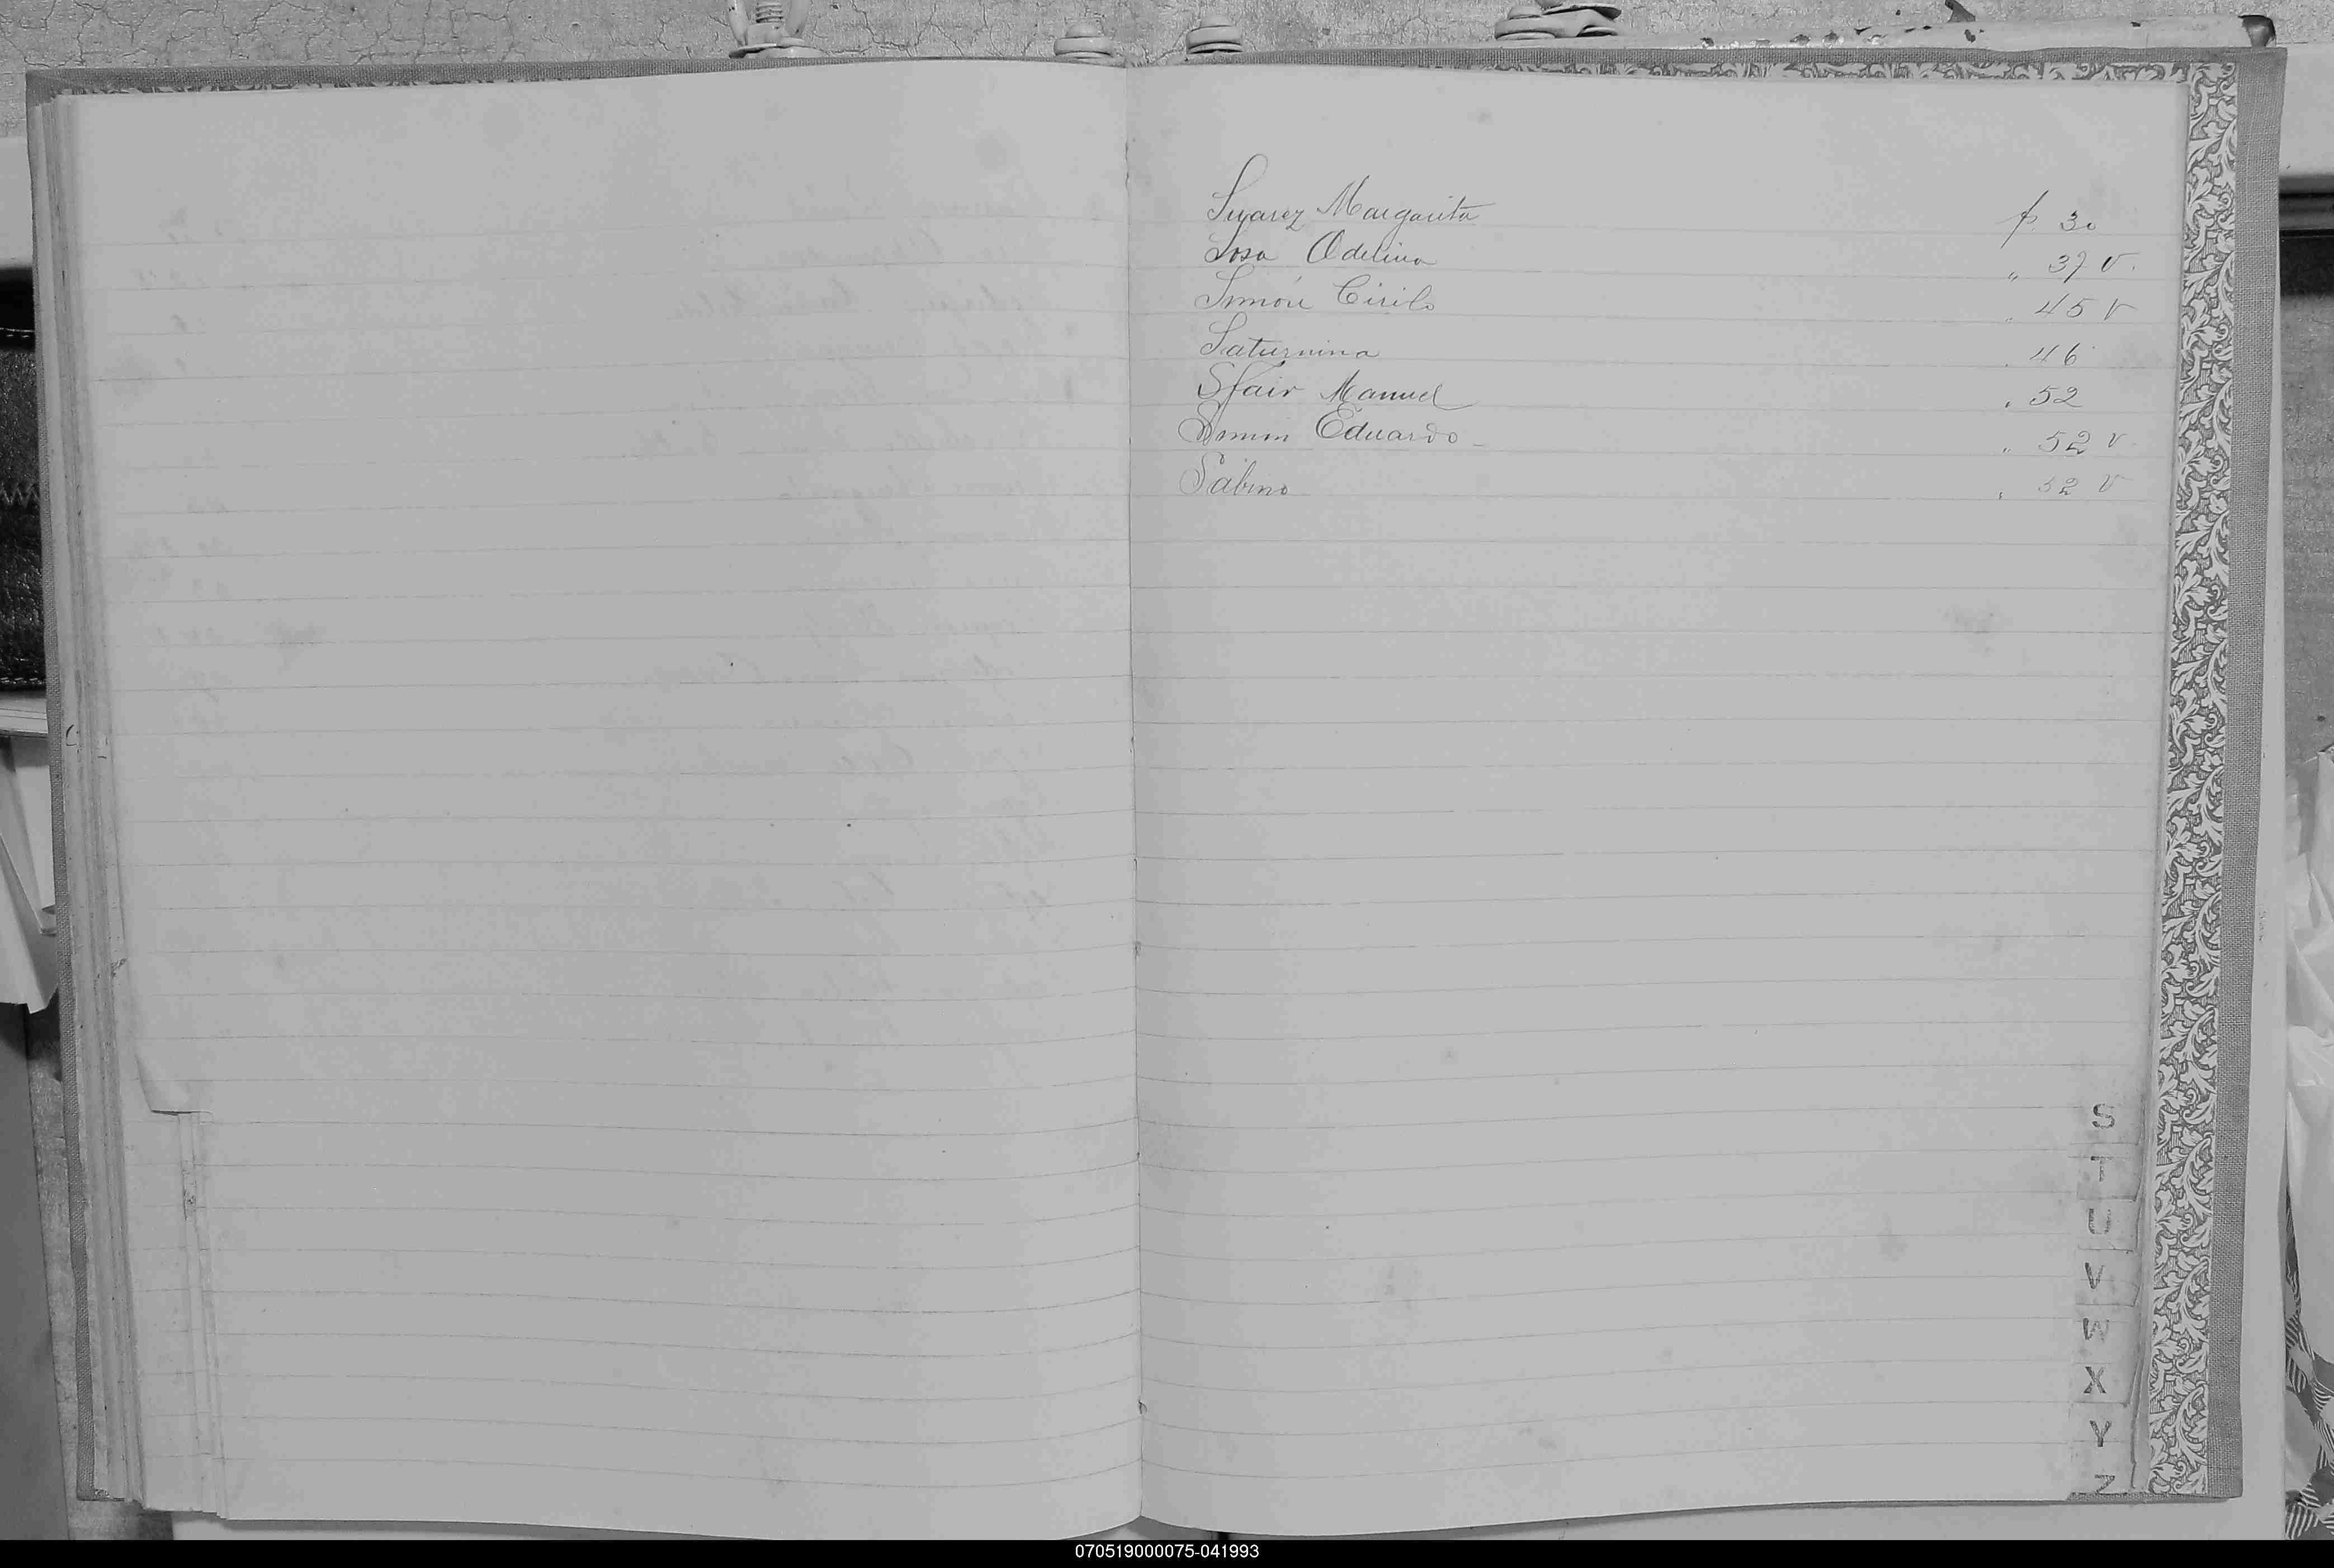 Suarez Margarita p. 30
Sosa Odelina " 37 v.
Simón Cirilo . 45 v
Saturnina . 46
Sfair Manuel . 52
Simon Eduardo - " 52 v
Sabino . 52 v
S
T
U
V
W
X
Y
Z
070519000075-041993